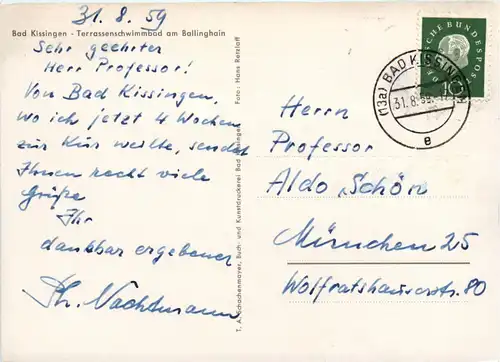 31.8.59
Bad Kissingen - Terrassenschwimmbad am Ballinghain
Sehr geehrter
Herr Professor!
Von Bad Kissingen,
wo ich jetzt 4 Wochen
zur Kur weilte, sendet
Ihnen recht viele
Grüße
Ihr
dankbar ergebener
Nachtmann
Foto: Hans Retzlaff
T. A. Schachenmayer, Buch- und Kunstdruckerei Bad Kissingen
DEUTSCHE BUNDESPOST
10
(13a) BAD KISSINGEN
31.8.59
e
Herrn
Professor
Aldo Schön
München 25
Wolfratshauserstr. 80